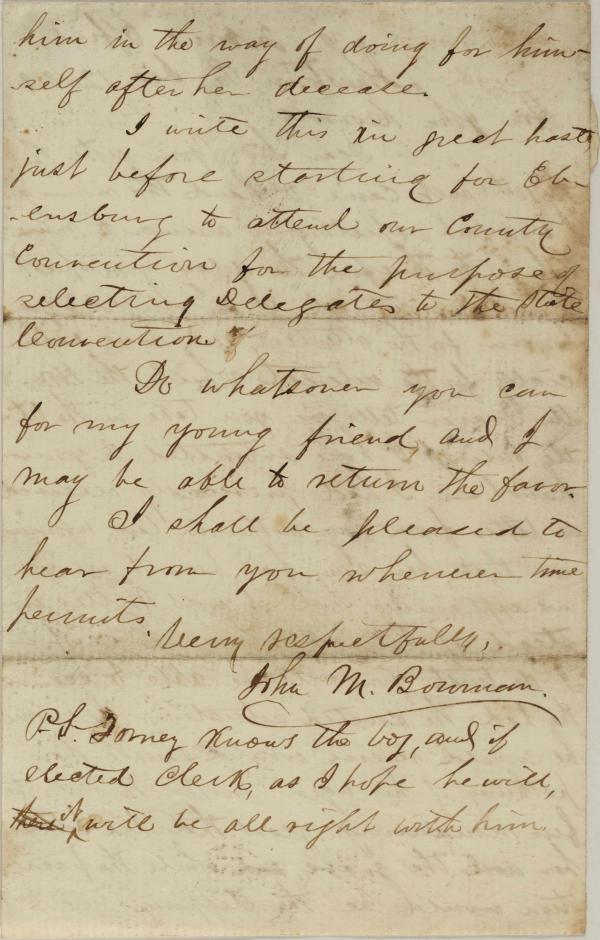 him in the way of doing for him-
self after her decease.
I write this in great haste
just before starting for Eb-
-ensburg to attend our County
Convention for the purpose of
selecting Delegates to the State
Convention.
Do whatsoever you can
for my young friend, and I
may be able to return the favor.
I shall be pleased to
hear from you whenever time
permits.
Very respectfully,
John M. Bowman.
P.S. Forney knows the boy, and if
elected Clerk, as I hope he will,
it will be all right with him